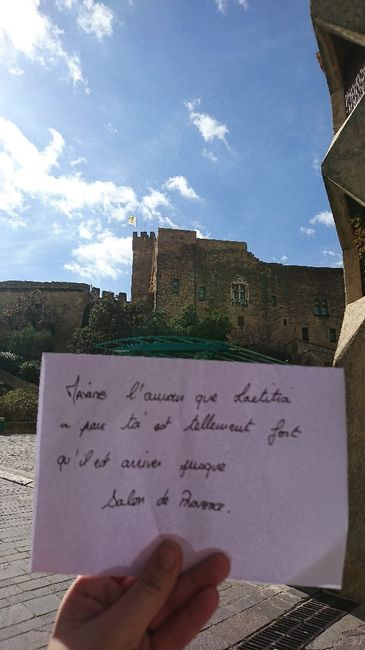 l'amour que Laetitia
a pour toi est tellement fort
qu'il est arriver jusque
Salon de Provence.